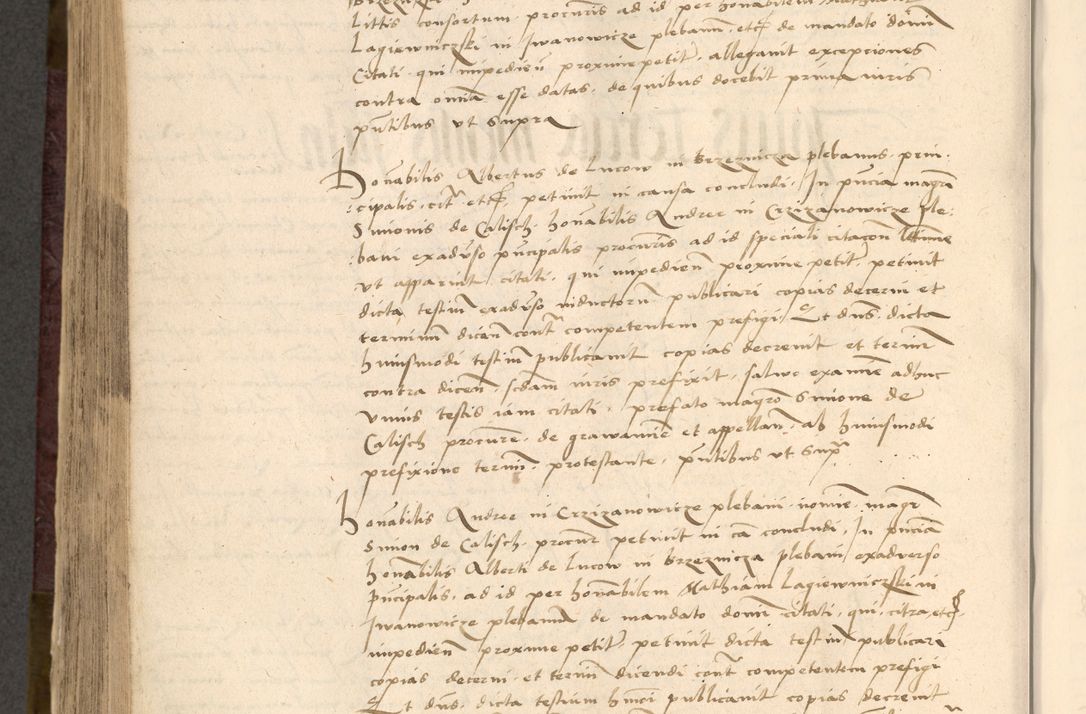 Littis consortum procuris ad id per honabilem
Lagiewniczski in Iwanowicze plebanum etc de mandato domini
Citati qui impedien proxime petit, allegauit excepciones
contra omnia esse datas, de quibus docebit prima iuris
pntibus vt supra
Honabilis Albertus de Lucow in Brzeznicza plebanus prin:
:cipalis, citra etc, petiuit in causa concludi, In pncia magri
Simonis de Calisch, honabilis Andree in Crzizanowicze ple:
:bani exaduso principalis procuris ad id speciali citacon
vt apparuit citati, qui impedien proxime petit, petiuit
dicta testium exaduso inductorum publicari copias decerni et
terminum dicen cont competentem prefigi, Et dns, dicta
huiusmodi testium publicauit copias decreuit et termin
contra dicen scdam iuris prefixit, saluo examine adhuc
vnius testis iam citati, prefato magro Simone de
Calisch procure, de grauamine et appellan, ab huiusmodi
prefixione termin, protestante, pntibus vt supra
Honabilis Andree in Crzizanowicze plebani nomine magr
Simon de Calisch, procur petiuit in ca concludi, In pnciam
honabilis Alberti de Lucow in Brzeznicza plebani exadverso
principalis, ad id per honabilem Mathiam Lagiewniczski in
Iwanowicze plebanum de mandato domini citati, qui, citra, etc
impedien proxime petit, petiuit dicta testium publicari
copias decerni, et termin dicendi cont competentem prefigi
Et dns, dicta testium hmoi publicauit copias decreuit